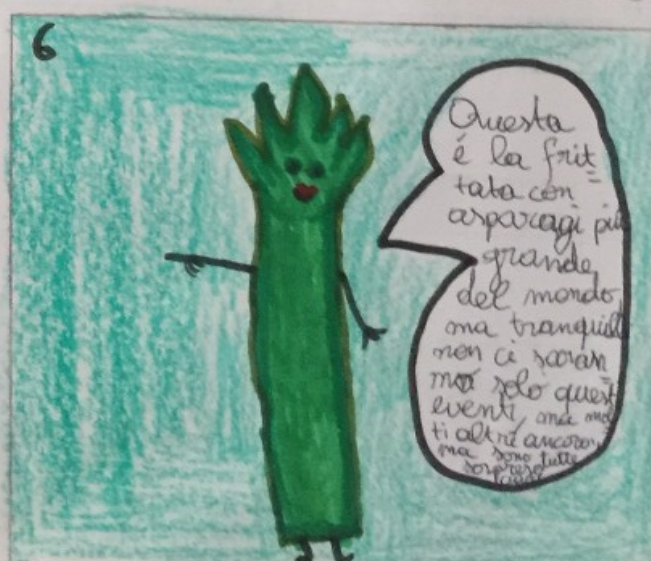 6
Questa
é la frit=
tata con
asparagi più
grande
del mondo,
ma tranquilli
non ci saran=
no solo questi
eventi, ma mol
ti altri ancora,
ma sono tutte
sorprese